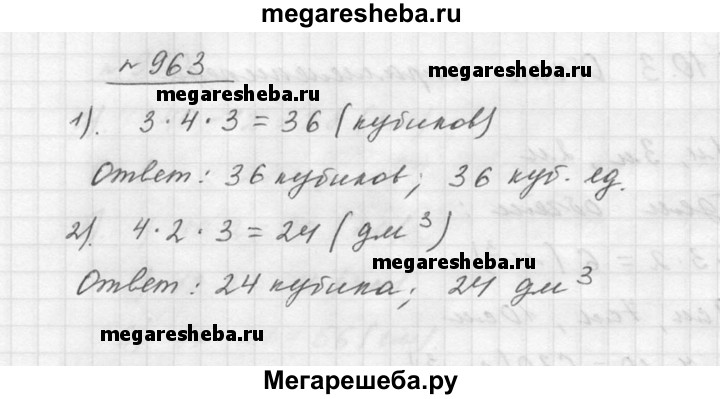 megaresheba.ru
№963
megaresheba.ru
megaresheba.ru
1). 3·4·3=36 (кубиков)
Ответ: 36 кубиков; 36 куб. ед.
2). 4·2·3=24 (дм³)
megaresheba.ru
Ответ: 24 кубика; 24 дм³
megaresheba.ru
Мегарешеба.ру